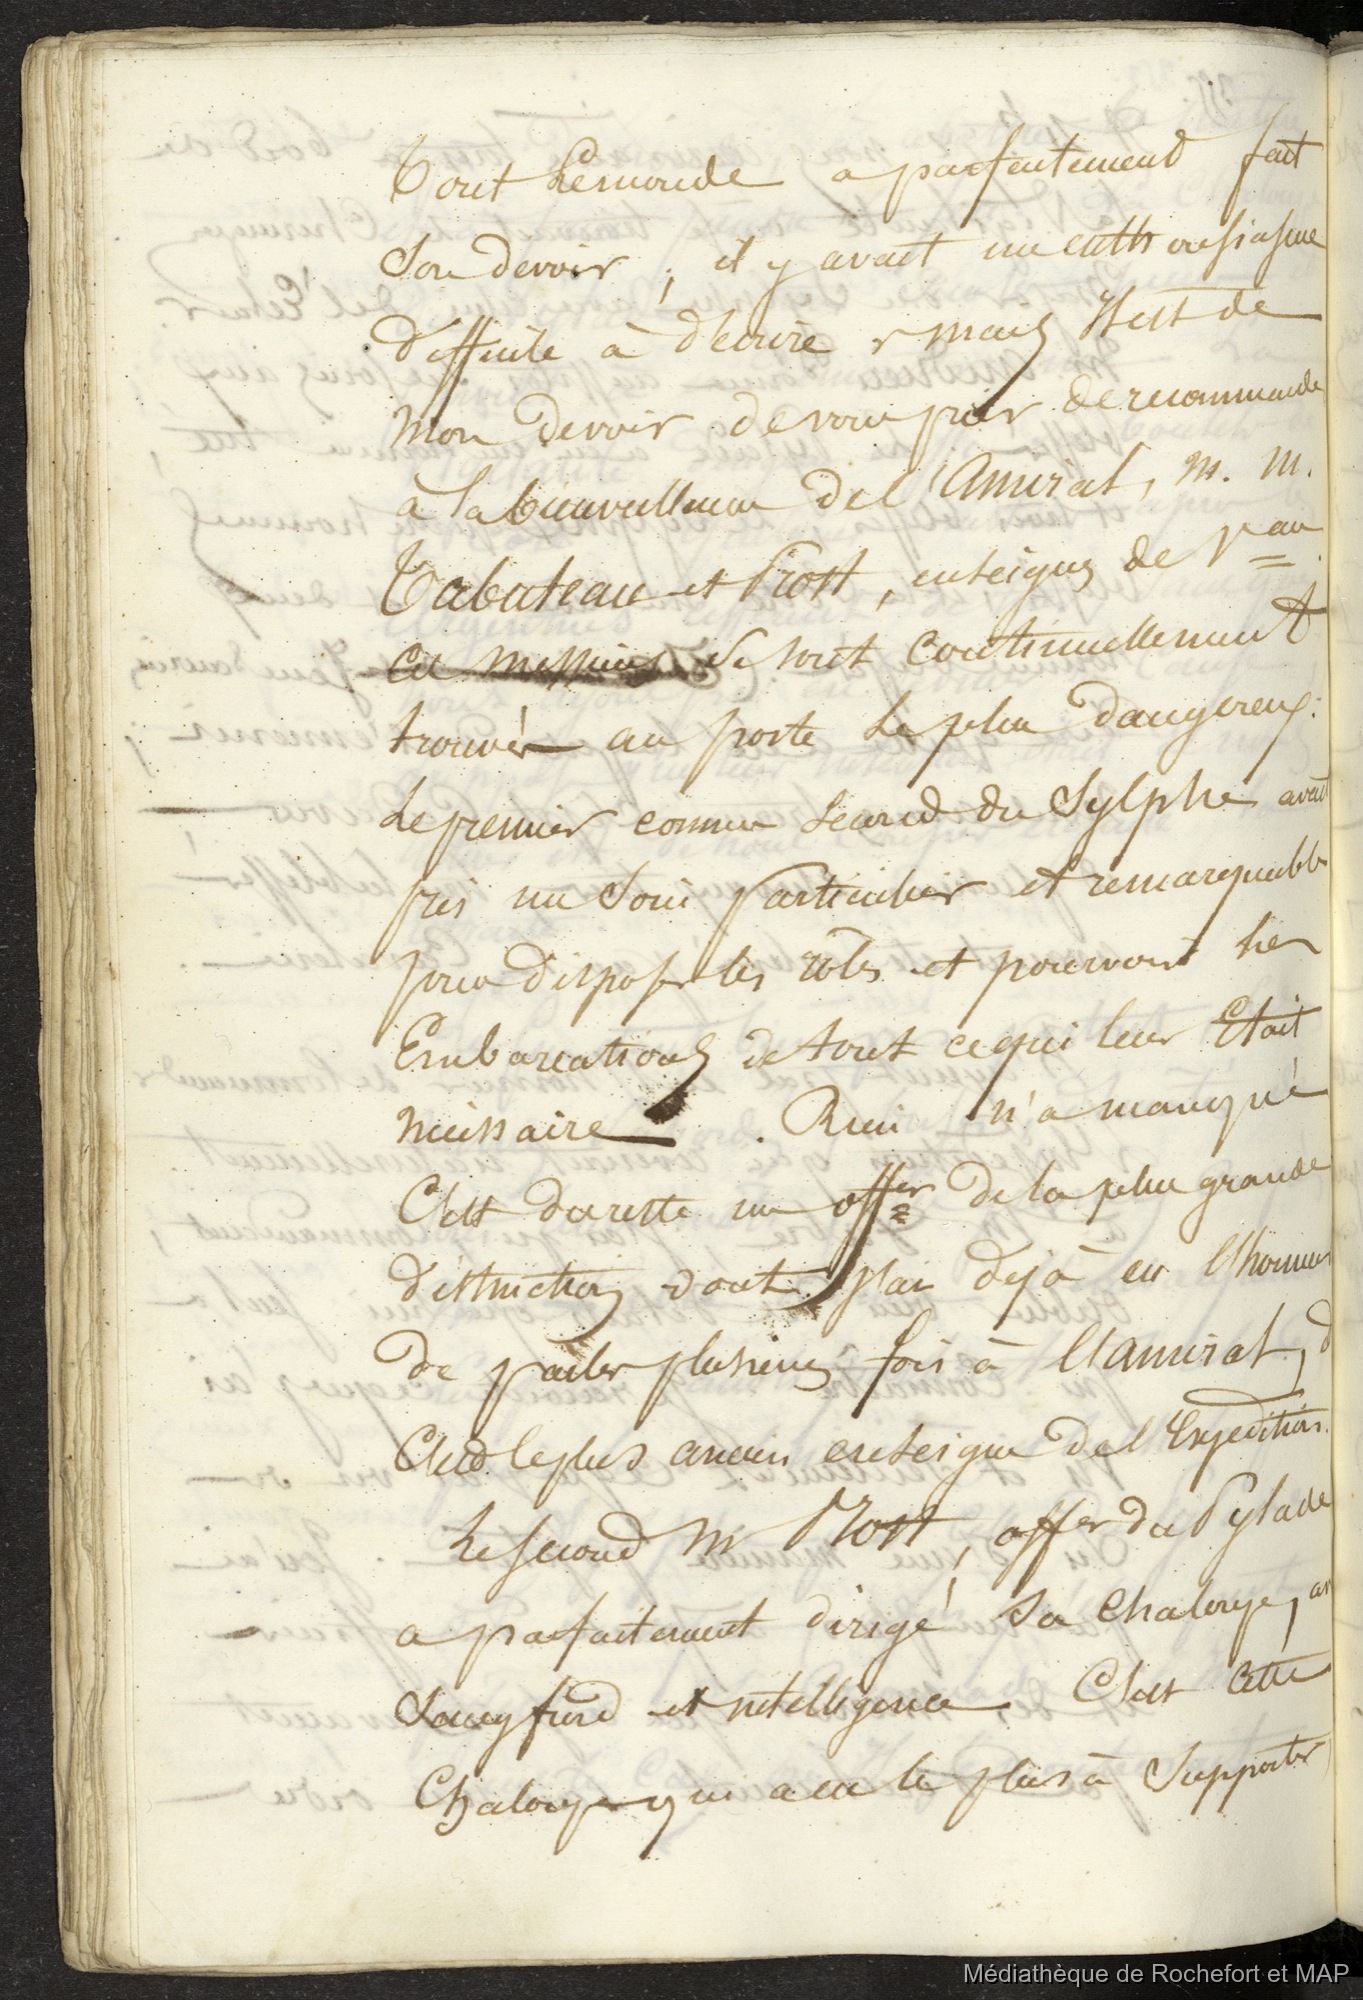 Tout le monde a parfaitement fait
son devoir ; il y avait un enthousiasme
difficile à décrire, mais Il est de
mon devoir de vous prier de recommander
à la bienveillance de l'Amiral, M. M.
Tabuteau et Prost, enseignes de Vau
ces messieurs se sont continuellement
trouvés au poste le plus dangereux :
Le premier comme second du Sylphe avait
pris un soin particulier et remarquable
pour disposer les rôles et pourvoir les
Embarcations de tout ce qui leur Etait
nécessaire . Rien n'a manqué
C'est du reste un offer de la plus grande
distinction dont j'ai déjà eu l'honneur
de parler plusieurs fois à l'Amiral,
C'est le plus ancien enseigne de l'Expedition.
Le second Mr Prost, offer du Pylade
a parfaitement dirigé sa chaloupe,
Sang froid et intelligence. C'est cette
Chaloupe qui a eu le plus à Supporter
Médiathèque de Rochefort et MAP